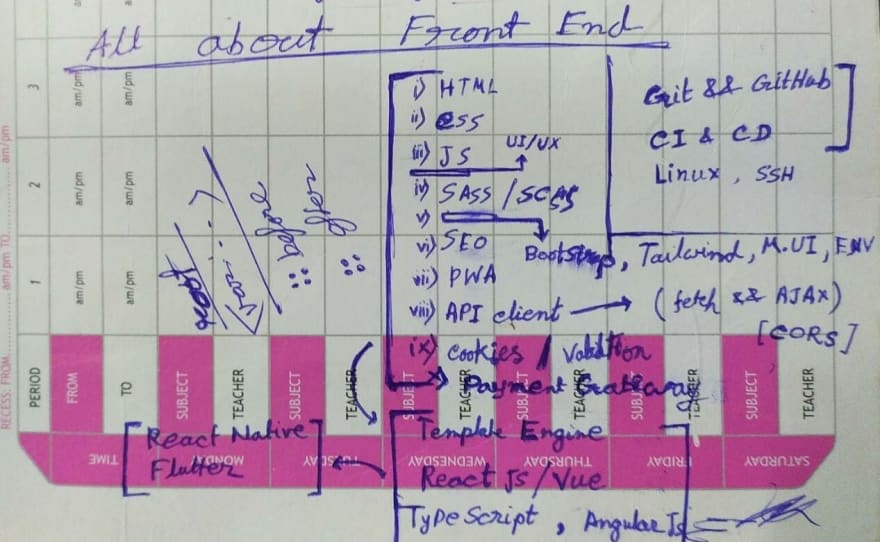 All about Front End
i) HTML
ii) CSS
iii) JS
UI/UX
iv) SASS / SCSS
v)
Bootstrap, Tailwind, M.UI, ENV
vi) SEO
vii) PWA
viii) API client → (fetch && AJAX)
[CORS]
ix) Cookies / Validation
x) Payment Gateway
Git && GitHub
CI & CD
Linux, SSH
:: before
:: after
Template Engine
React Js / Vue
TypeScript, Angular Js
[React Native
Flutter]
RECESS: FROM am/pm TO am/pm
PERIOD 1 2 3
FROM am/pm am/pm am/pm
TO am/pm am/pm am/pm
SUBJECT
TEACHER
SUBJECT
TEACHER
SUBJECT
TEACHER
SUBJECT
TEACHER
SUBJECT
TEACHER
SUBJECT
TEACHER
TIME
MONDAY
TUESDAY
WEDNESDAY
THURSDAY
FRIDAY
SATURDAY